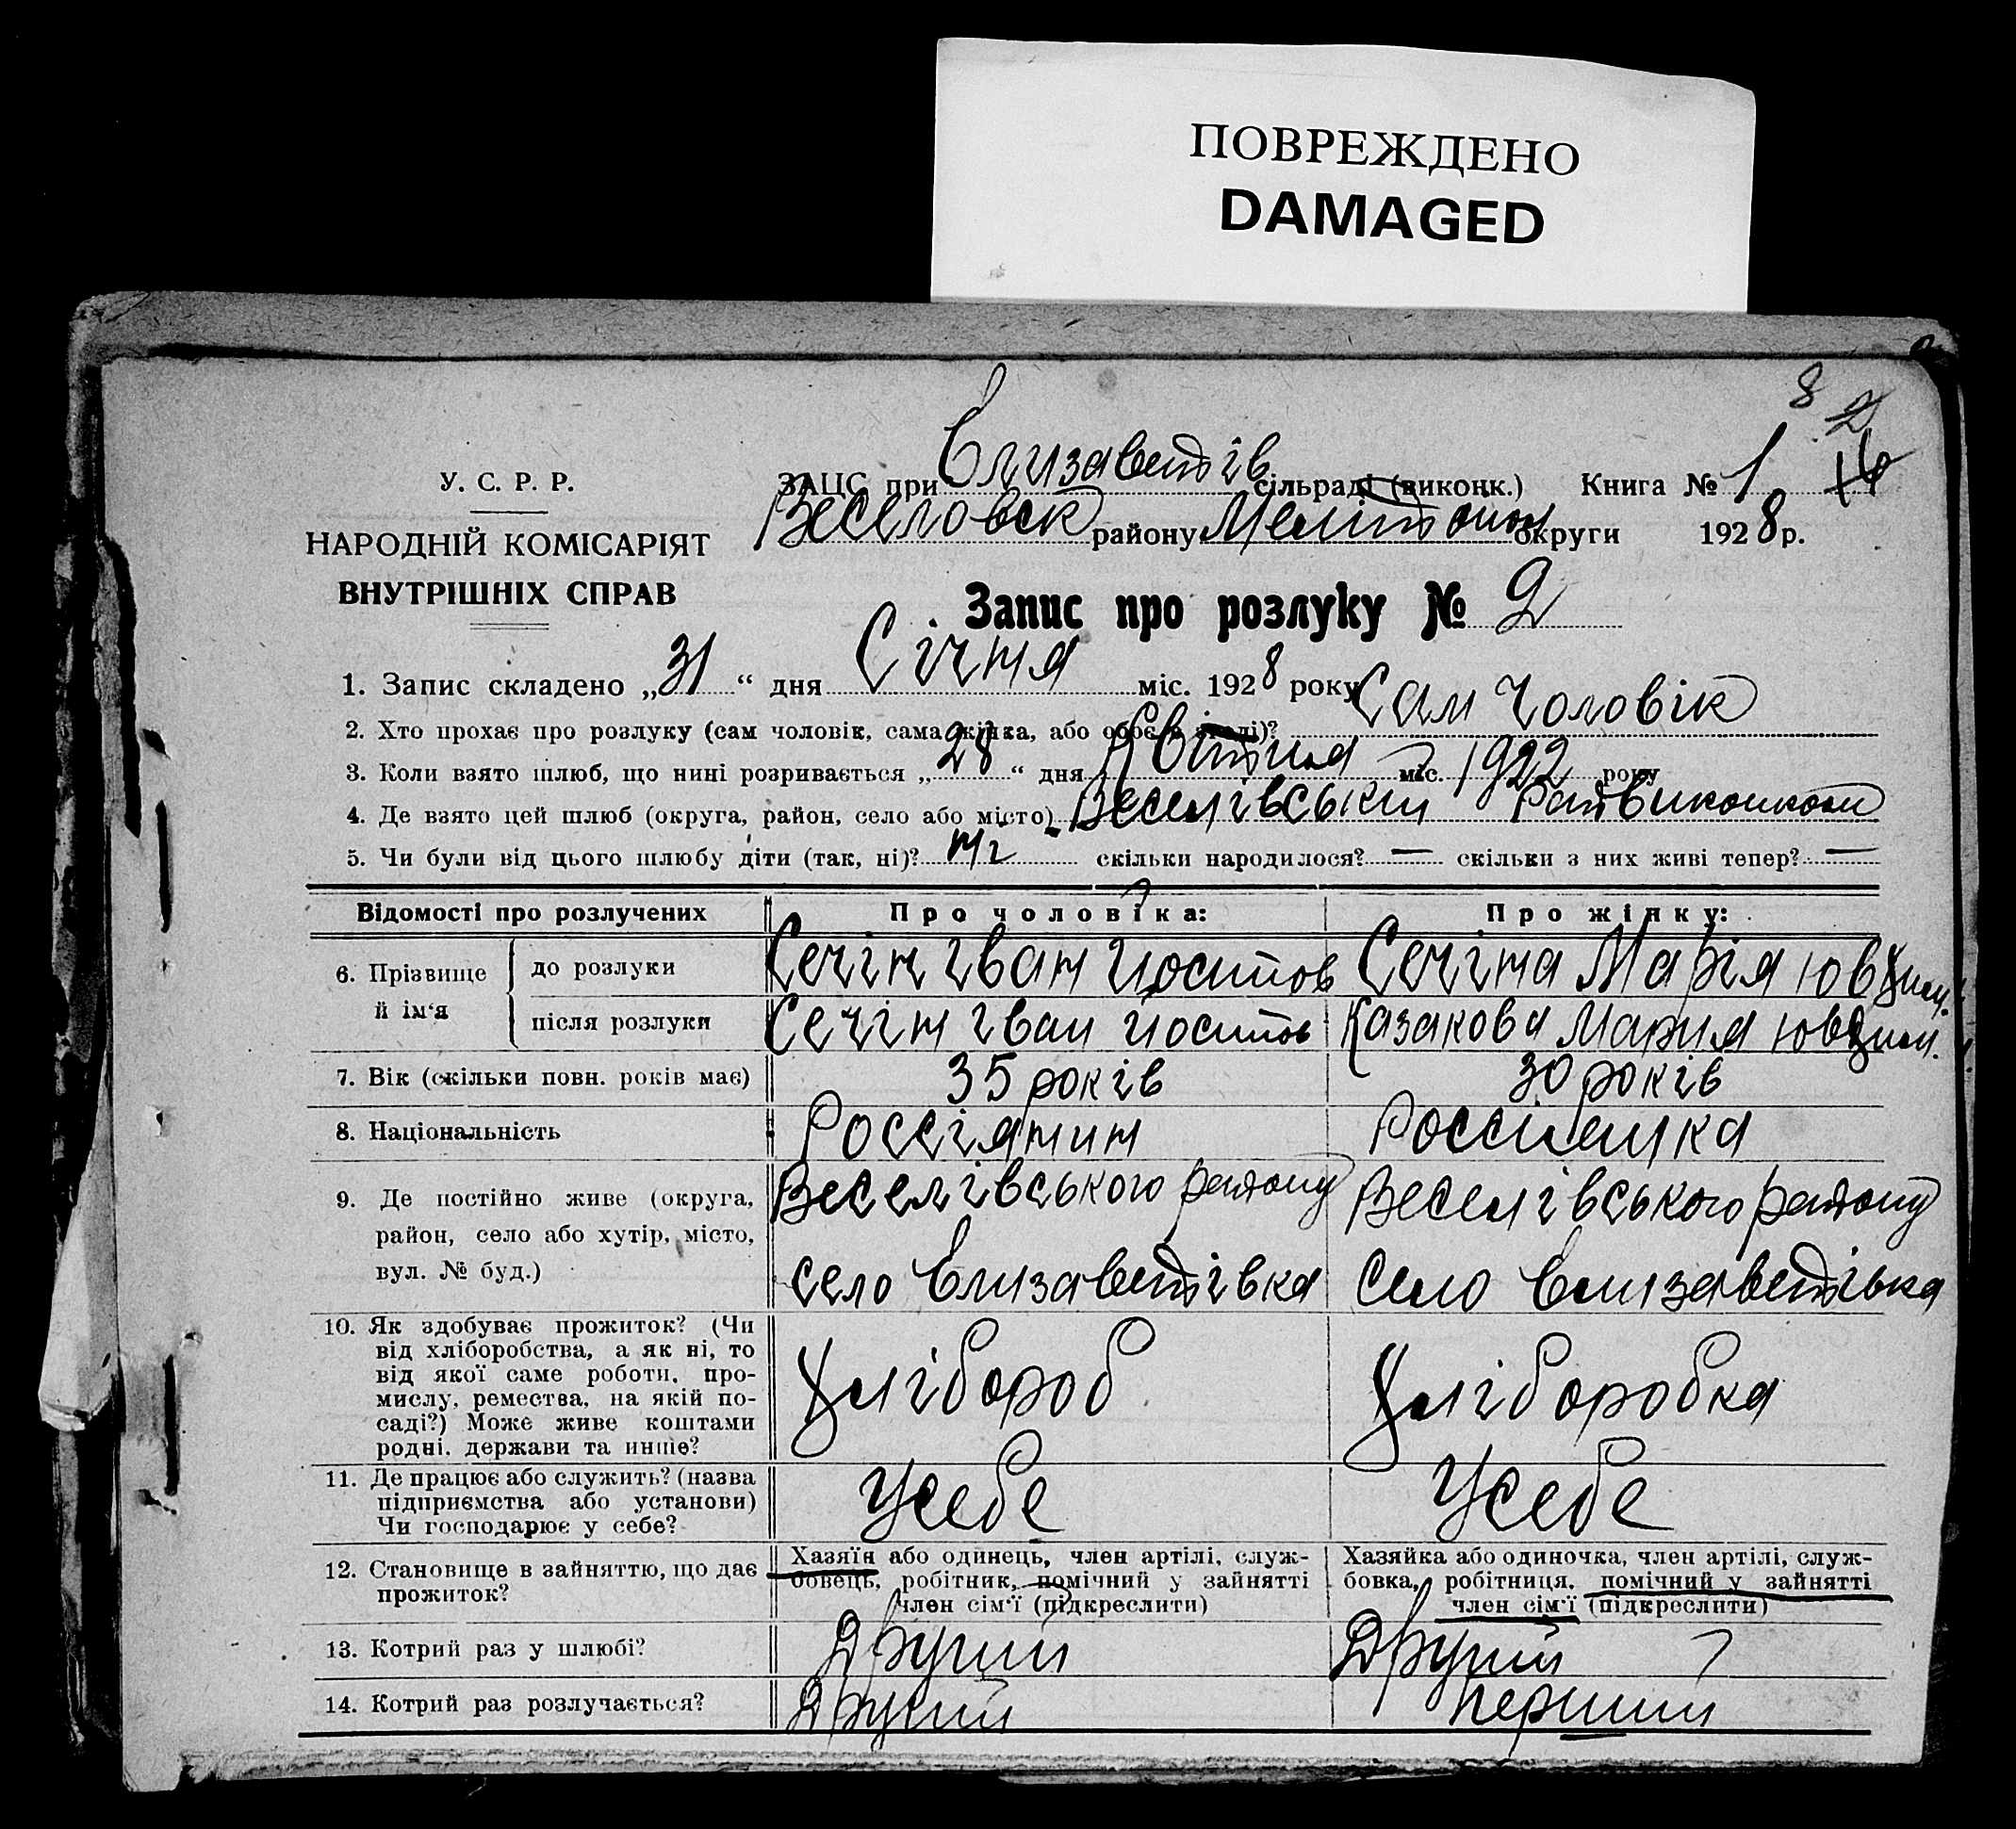 ПОВРЕЖДЕНО
DAMAGED
8 2
У. С. Р. Р.
НАРОДНІЙ КОМІСАРІЯТ
ВНУТРІШНІХ СПРАВ
ЗАЦС при Єлизаветів сільраді (виконк.) Книга № 1 16
Веселовск району округи 1928 р.
Запис про розлуку № 2
1. Запис складено „31“ дня Січня міс. 1928 року
2. Хто прохає про розлуку (сам чоловік, сама жінка, або обоє в згоді)? Сам Чоловік
3. Коли взято шлюб, що нині розривається „28“ дня Квітня міс. 1922 року
4. Де взято цей шлюб (округа, район, село або місто) Веселівський Райвиконком
5. Чи були від цього шлюбу діти (так, ні)? ні скільки народилося? — скільки з них живі тепер? —
Відомості про розлучених Про чоловіка: Про жінку:
6. Прізвище й ім‘я
до розлуки Сечін Іван Йосипов Сечіна Марія
після розлуки Сечін Іван Йосипов Казакова Мария
7. Вік (скільки повн. років має) 35 років 30 років
8. Національність Россіянин Россиянка
9. Де постійно живе (округа, район, село або хутір, місто, вул. № буд.)
Веселівського району Веселівського району
село Єлизаветівка село Єлизаветівка
10. Як здобуває прожиток? (Чи
від хліборобства, а як ні, то
від якої саме роботи, про-
мислу, ремества, на якій по-
саді?) Може живе коштами
родні, держави та инше?
Хлібороб Хліборобка
11. Де працює або служить? (назва
підприємства або установи)
Чи господарює у себе?
Усебе Усебе
12. Становище в зайняттю, що дає
прожиток?
Хазяїн або одинець, член артілі, служ-
бовець, робітник, помічний у зайнятті
член сім‘ї (підкреслити)
Хазяйка або одиночка, член артілі, служ-
бовка, робітниця, помічний у зайнятті
член сім‘ї (підкреслити)
13. Котрий раз у шлюбі? Другий Другий
14. Котрий раз розлучається? Другий Перший